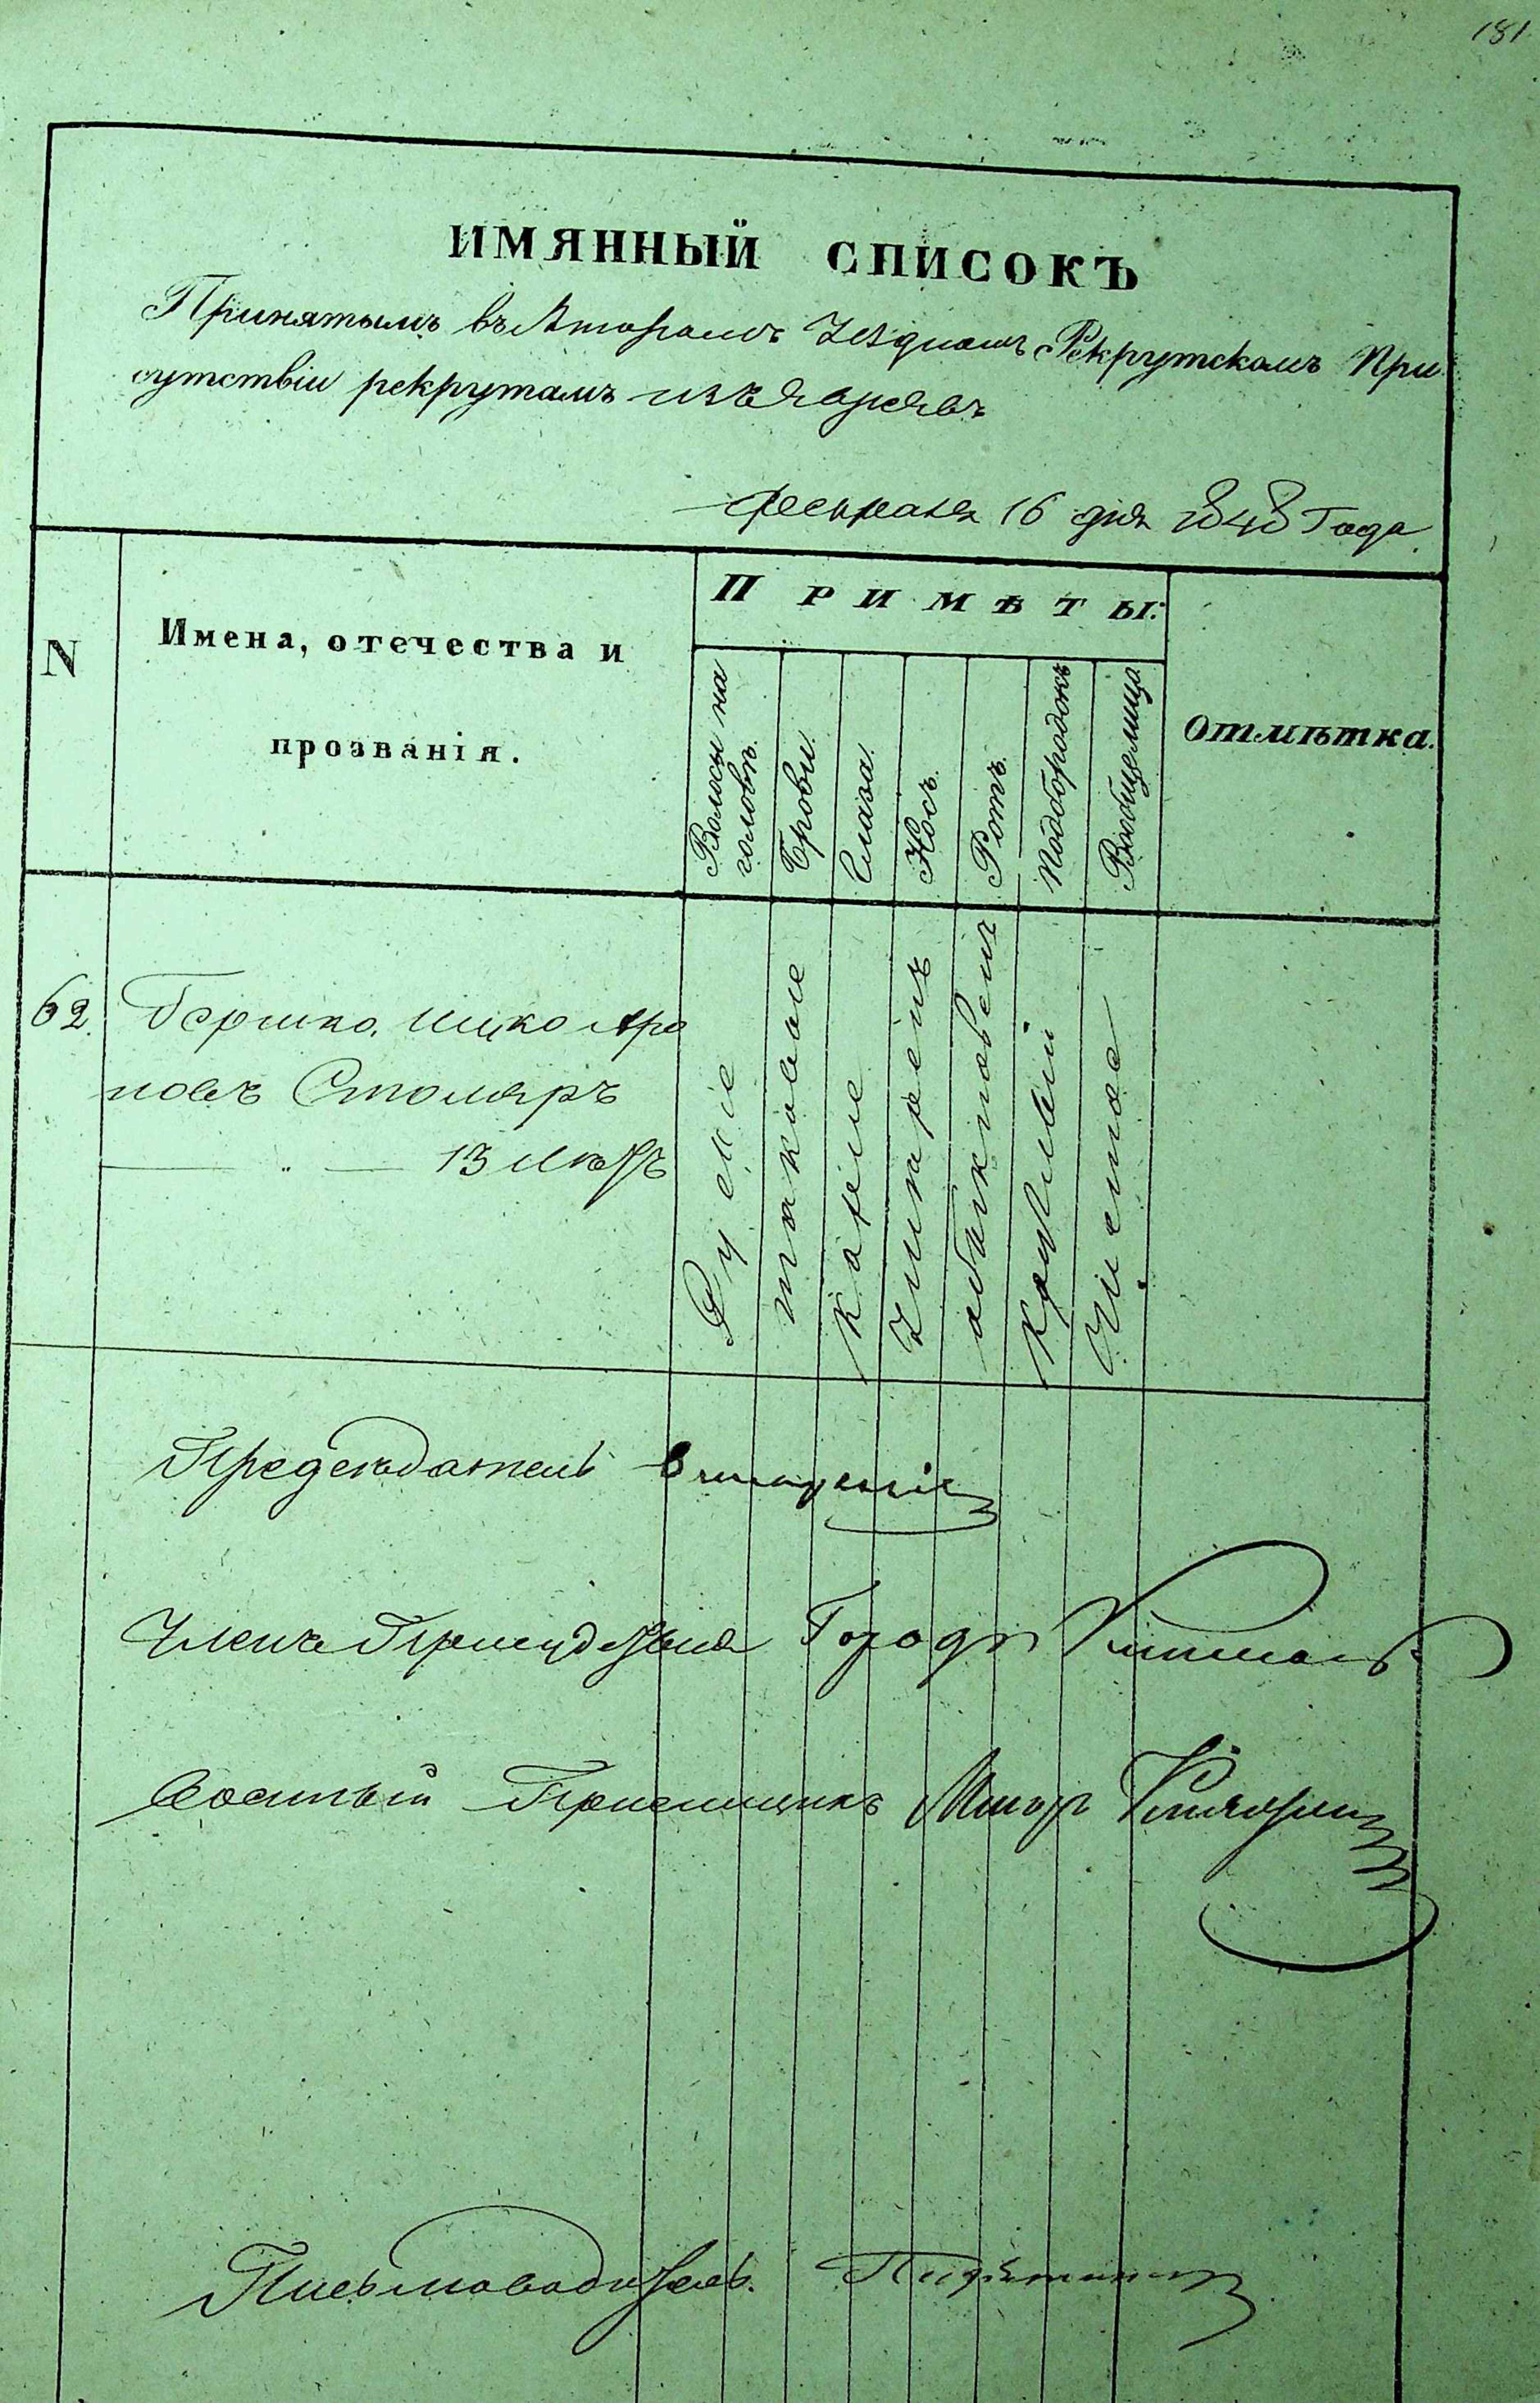 181
ИМЯННЫЙ СПИСОКЪ
Принятымъ въ Второмъ Уѣздномъ Рекрутскомъ При
сутствіи рекрутамъ изъ евреевъ
февраля 16 дня 1848 Года
N
Имена, отечества и
прозванія.
Примѣты:
Волосы на
головѣ.
Брови
Глаза
Носъ
Ротъ
Подбородокъ
Вообще лицо
Отмѣтка.
62. Гершко Ицко Аро
новъ Столяръ
13 лѣтъ
Русые
таковые
каріе
умѣренъ
обыкновенъ
круглый
Чистое
Председатель
Члены Присудствія Городн
Военный Пріемщикъ Маіоръ
Письмоводитель